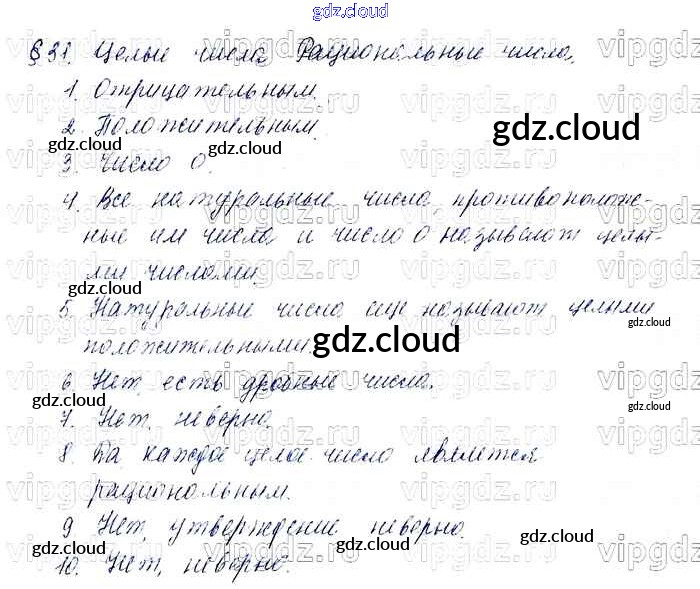 gdz.cloud
§31. Целые числа. Рациональные числа.
1. Отрицательным.
2. Положительным.
gdz.cloud
3. Число 0.
gdz.cloud
gdz.cloud
4. Все натуральные числа, противополож-
ные им числа и число 0 называют целы-
ми числами.
gdz.cloud
5. Натуральные числа еще называют целыми
gdz.cloud
положительными.
gdz.cloud
6. Нет, есть дробные числа.
gdz.cloud
gdz.cloud
7. Нет, неверно.
8. Да каждое целое число является
рациональным.
9 Нет, утверждение неверно.
gdz.cloud
gdz.cloud
10. Нет, неверно.